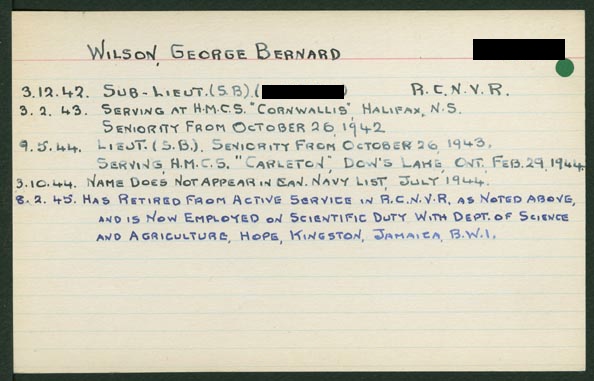 WILSON, GEORGE BERNARD
3.12.42. SUB-LIEUT. (S.B), ( ) R.C.N.V.R.
3.2.43. SERVING AT H.M.C.S. "CORNWALLIS", HALIFAX, N.S.
SENIORITY FROM OCTOBER 26, 1942
9.5.44. LIEUT. (S.B.), SENIORITY FROM OCTOBER 26, 1943.
SERVING, H.M.C.S. "CARLETON", DOW'S LAKE, ONT, FEB. 29, 1944.
3.10.44. NAME DOES NOT APPEAR IN CAN. NAVY LIST, JULY 1944.
8.2.45. HAS RETIRED FROM ACTIVE SERVICE IN R.C.N.V.R, AS NOTED ABOVE,
AND IS NOW EMPLOYED ON SCIENTIFIC DUTY WITH DEPT. OF SCIENCE
AND AGRICULTURE, HOPE, KINGSTON, JAMAICA, B.W.I.